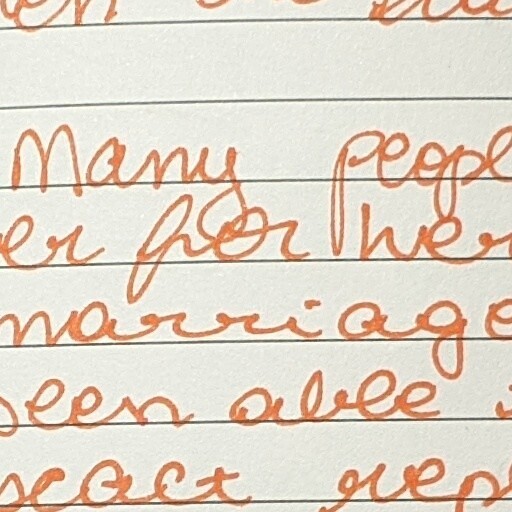 Many peopl
er for her
marriage
been able
react rep